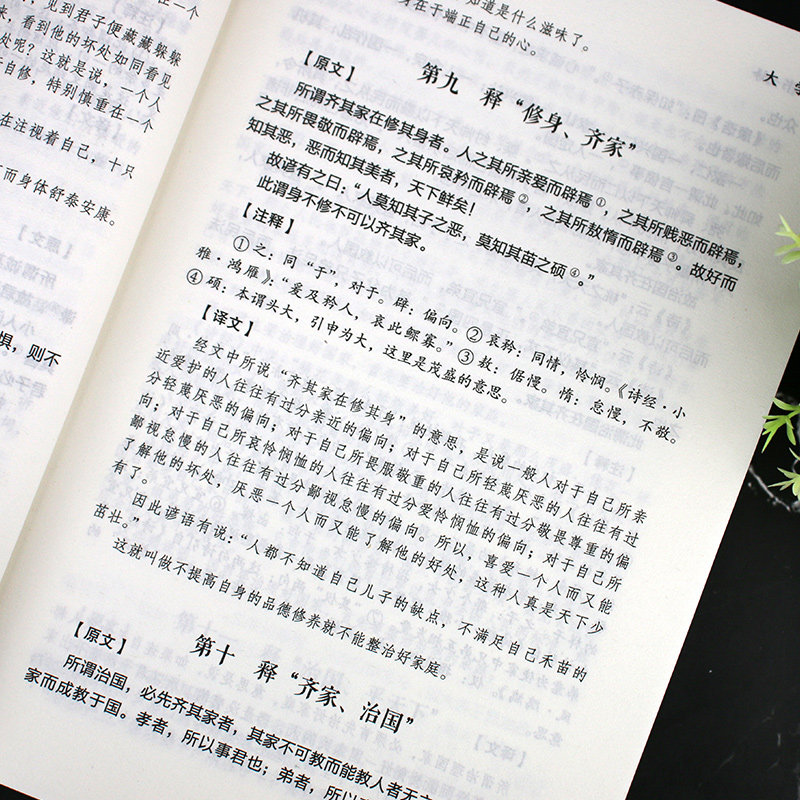 在一个
，见到君子便藏藏躲躲
，看到他的坏处如同看见
处呢？这就是说，一个人
自修，特别慎重在一个
在注视着自己，十只
而身体舒泰安康。
惧，则不
知道是什么滋味了。
身在于端正自己的心。
大学
第九 释“修身、齐家”
【原文】
所谓齐其家在修其身者。人之其所亲爱而辟焉①，之其所贱恶而辟焉，
之其所畏敬而辟焉，之其所哀矜而辟焉②，之其所敖惰而辟焉③。故好而
知其恶，恶而知其美者，天下鲜矣！
故谚有之曰：“人莫知其子之恶，莫知其苗之硕④。”
此谓身不修不可以齐其家。
【注释】
①之：同“于”，对于。辟：偏向。②哀矜：同情，怜悯。《诗经·小
雅·鸿雁》：“爰及矜人，哀此鳏寡。”③敖：倨慢。惰：怠慢，不敬。
④硕：本谓头大，引申为大，这里是茂盛的意思。
【译文】
经文中所说“齐其家在修其身”的意思，是说一般人对于自己所亲
近爱护的人往往有过分亲近的偏向；对于自己所轻蔑厌恶的人往往有过
分轻蔑厌恶的偏向；对于自己所畏服敬重的人往往有过分敬畏尊重的偏
向；对于自己所哀怜悯恤的人往往有过分爱怜悯恤的偏向；对于自己所
鄙视怠慢的人往往有过分鄙视怠慢的偏向。所以，喜爱一个人而又能
了解他的坏处，厌恶一个人而又能了解他的好处，这种人真是天下少
有了。
因此谚语有说：“人都不知道自己儿子的缺点，不满足自己禾苗的
茁壮。”
这就叫做不提高自身的品德修养就不能整治好家庭。
第十 释“齐家、治国”
【原文】
所谓治国，必先齐其家者，其家不可教而能教人者无
家而成教于国。孝者，所以事君也；弟者，所以